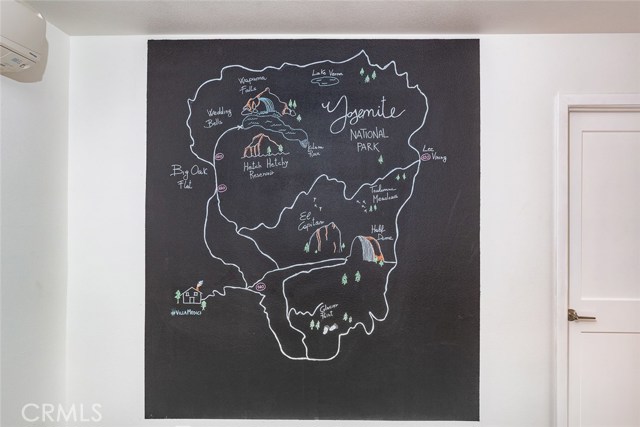 Lake Vernon
Wapama
Falls
Wedding
Bells
Yosemite
NATIONAL
PARK
Hetch Hetchy
Reservoir
Big Oak
Flat
Lee
Vining
Tuolumne
Meadows
El
Capitan
Half
Dome
Glacier
Point
@VILLAMEDIO
CRMLS